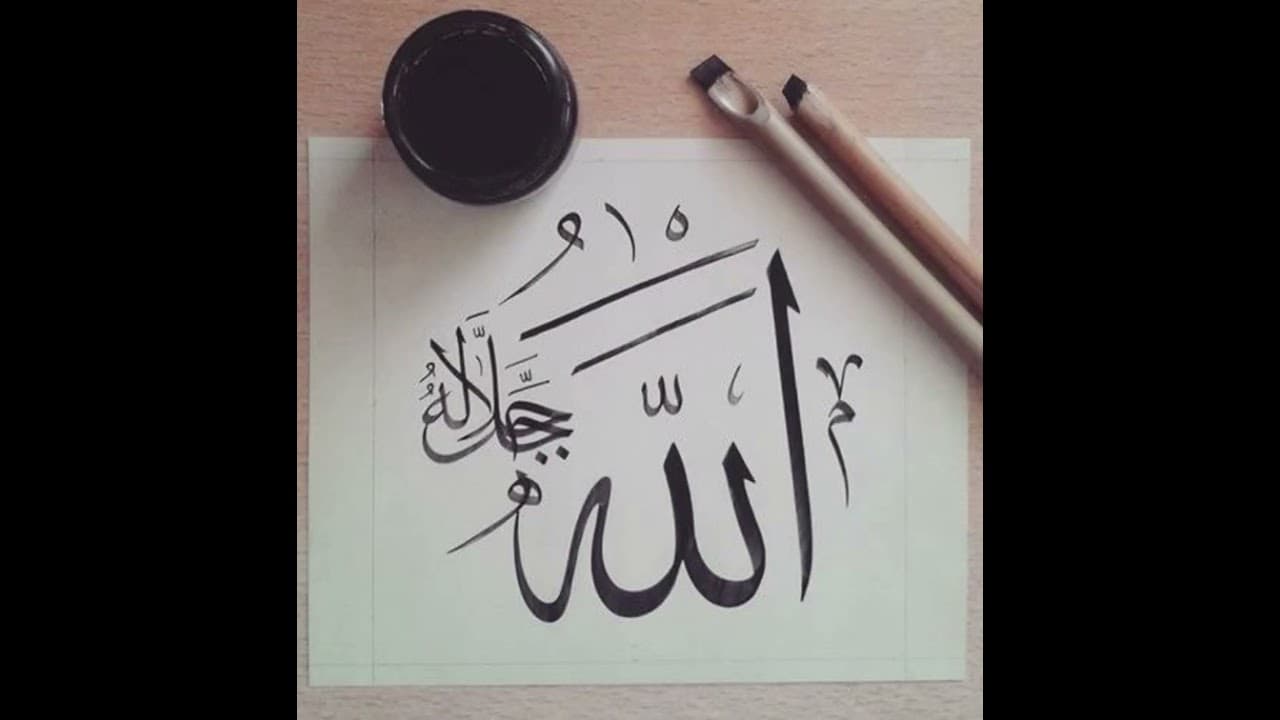 اللَّه
جَلَّ جَلَالُهُ